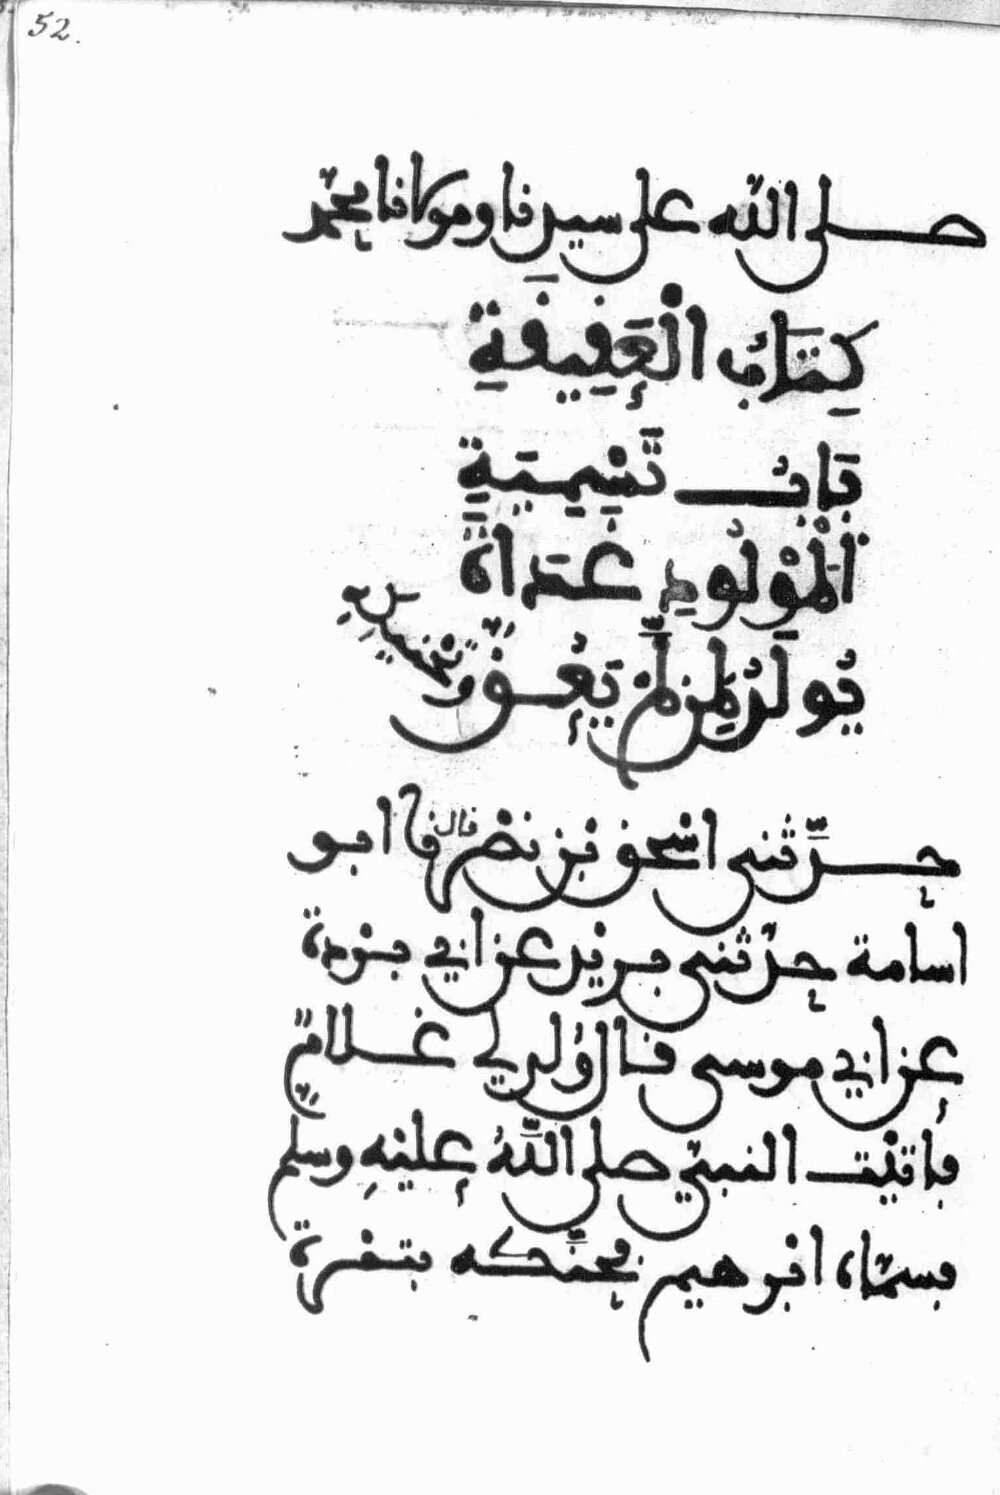 52.
صلى الله على سيدنا ومولانا محمد
كِتَابُ الْعَفِيفَةِ
بَابُ تَسْمِيَةِ
الْمَوْلُودِ غَدَاةَ
يُولَدُ لِمَن لَّمْ يَعُقَّ وتحنيكه
حدّثني اسْحٰق بْن نصْر قال نا ابو
اسامة حدّثني بريْد عن ابي بردة
عن ابي موسى قال وُلد لي غلامٌ
فاتيْت النبيّ صلى اللَّهُ عليْهِ وسلم
فسمّاه ابْرهيم فحنَّكه بتمْرة